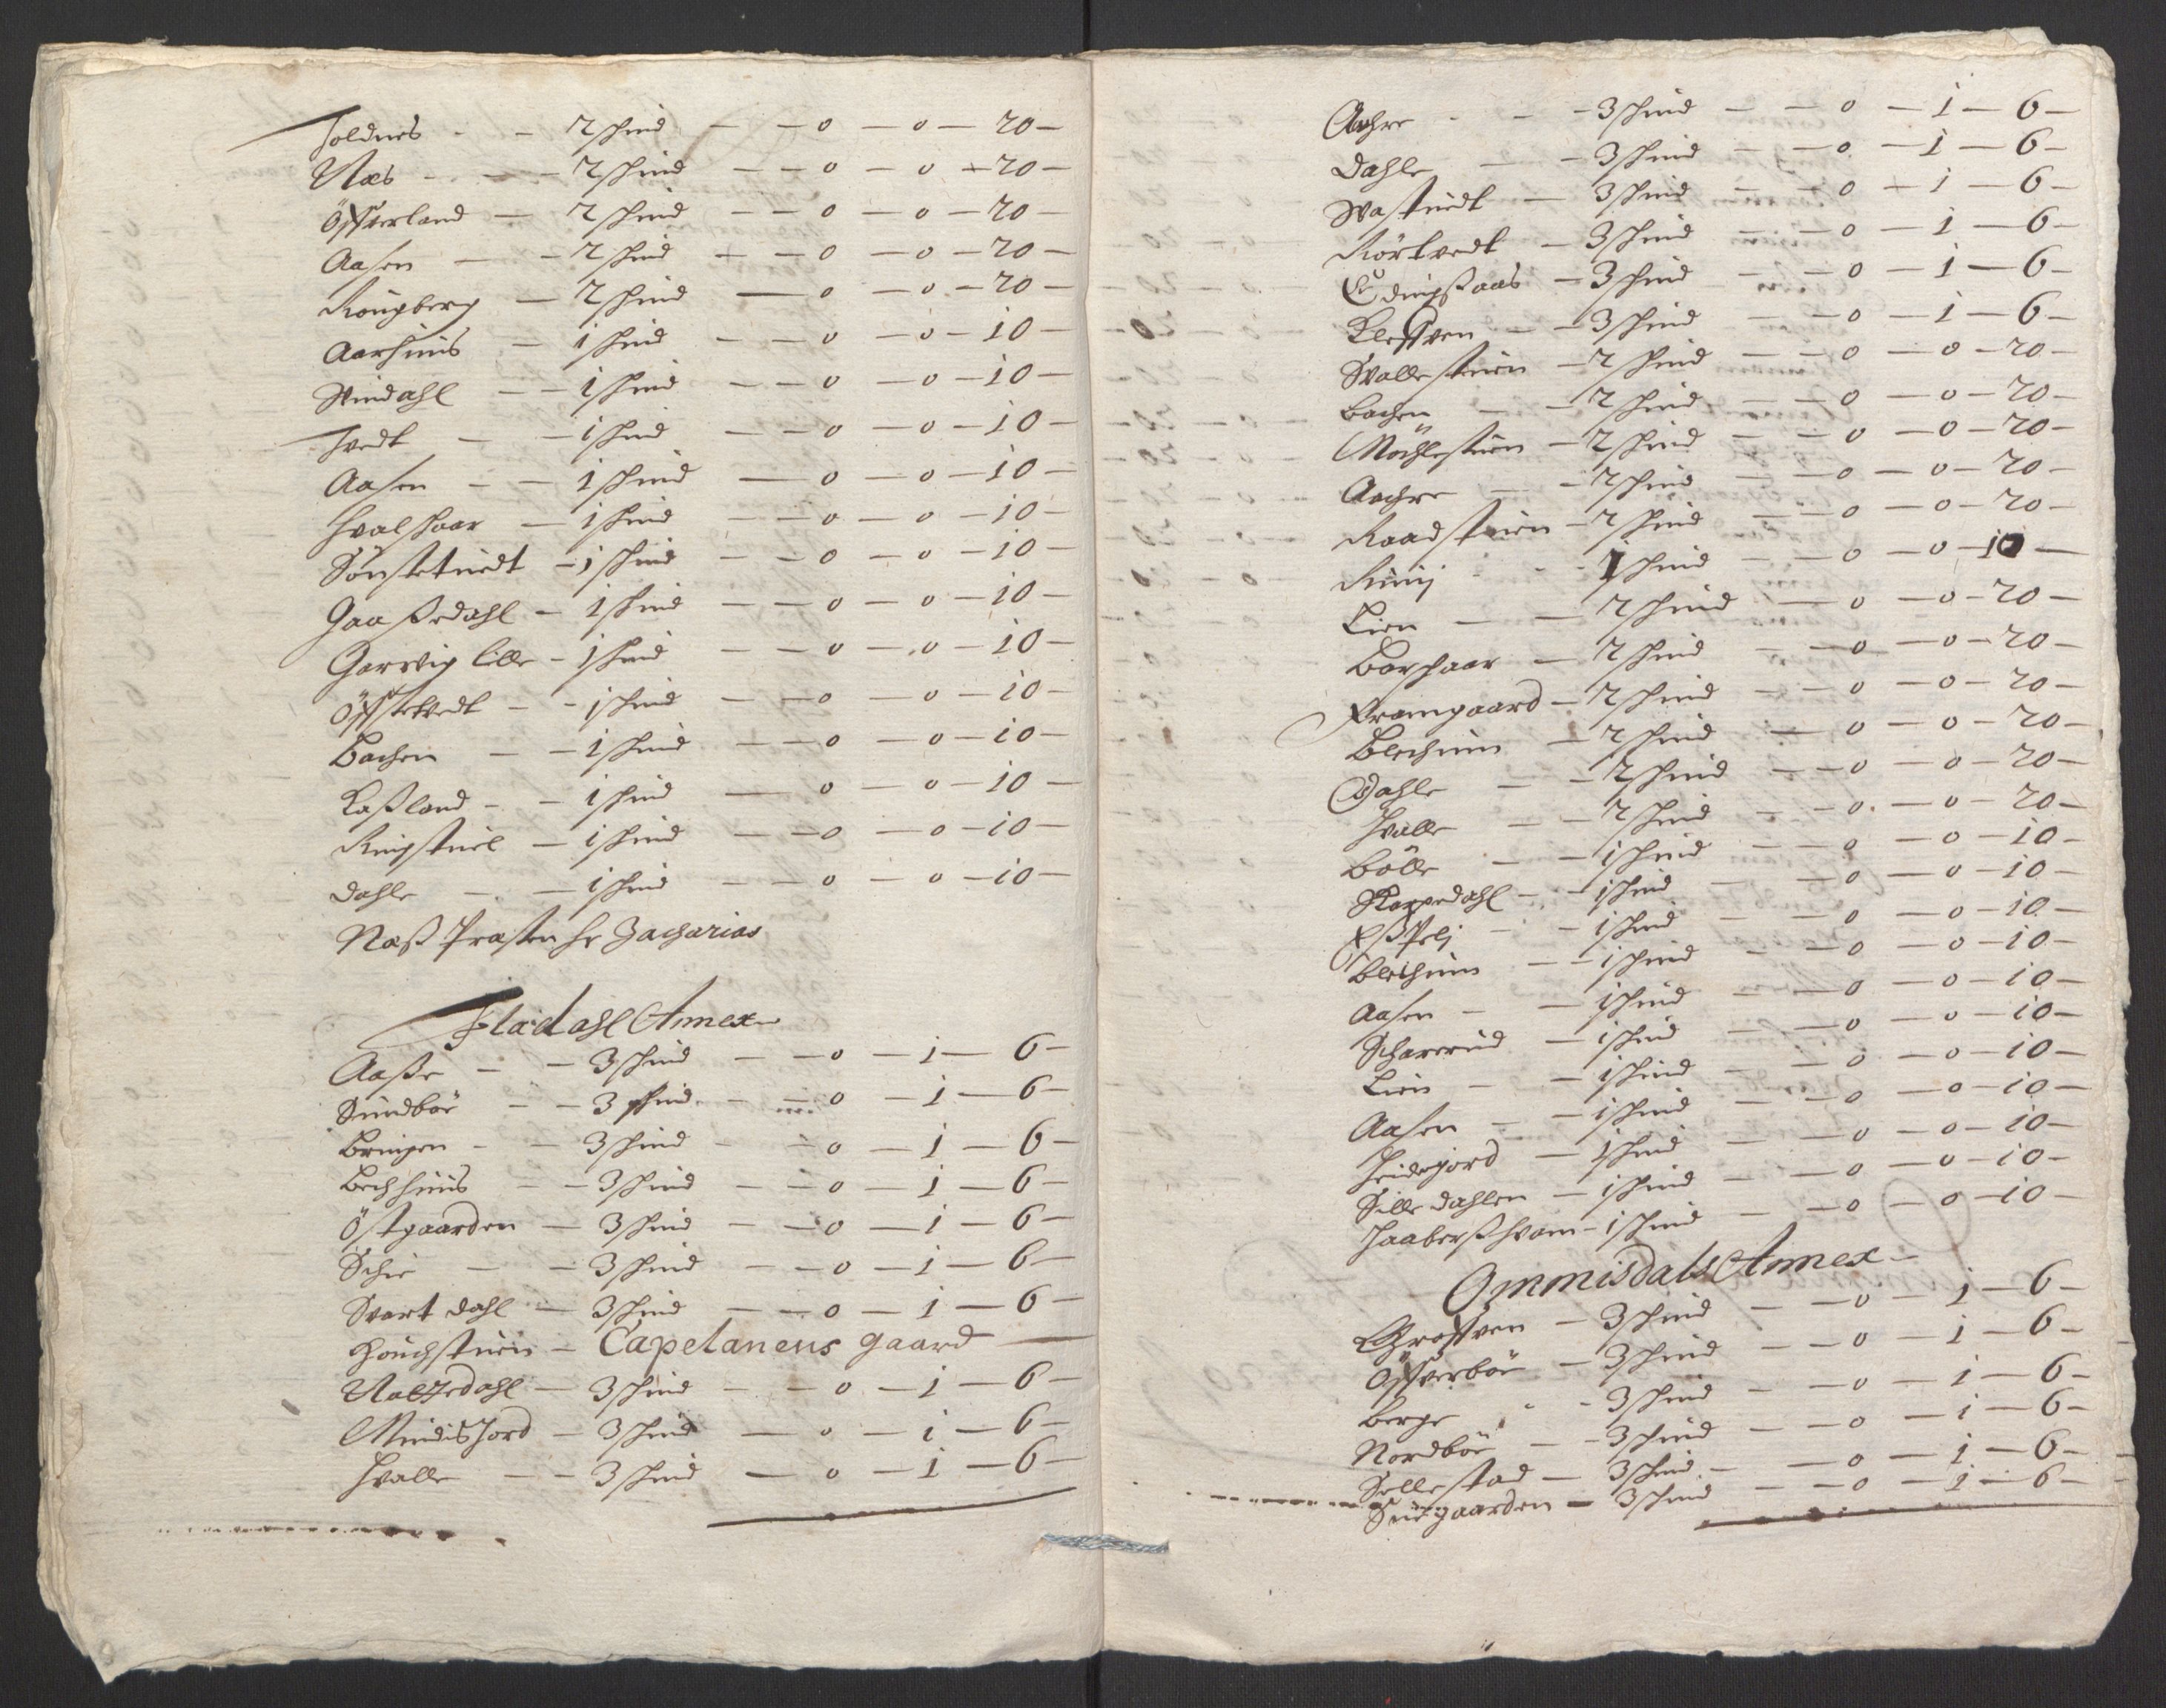 Holdnes - - 2 skind - - 0 - 0 - 20 -
Næs - - - 2 skind - - 0 - 0 - 20 -
Öfverland - 2 skind - - 0 - 0 - 20 -
Aasen - - 2 skind - - 0 - 0 - 20 -
Rougberg - 2 skind - 0 - 0 - 20 -
Aarhuus - 1 skind - - 0 - 0 - 10 -
Windahl - - 1 skind - - 0 - 0 - 10 -
Tvedt - - 1 skind - - 0 - 0 - 10 -
Aasen - - 1 skind - 0 - 0 - 10 -
Hvalskaar - 1 skind - - 0 - 0 - 10 -
Sönstetuedt - 1 skind - - 0 - 0 - 10 -
Gaasedahl - 1 skind - - 0 - 0 - 10 -
Garvig lille - 1 skind - - 0 - 0 - 10 -
Öfstetvedt - - 1 skind - - 0 - 0 - 10 -
Bachen - - 1 skind - - 0 - 0 - 10 -
Laßland - - 1 skind - 0 - 0 - 10 -
Ringstuel - 1 skind - - 0 - 0 - 10 -
Dahle - - 1 skind - - 0 - 0 - 10 -
Næß Præsten hr Zacharias
Fladahl Annex
Aaße - - 3 skind - - 0 - 1 - 6 -
Sundböe - - 3 skind - - 0 - 1 - 6 -
Bringen - - 3 skind - 0 - 1 - 6 -
Bechhuus - - 3 skind - - 0 - 1 - 6 -
Östgaarden - 3 skind - - 0 - 1 - 6 -
Schie - - 3 skind - - 0 - 1 - 6 -
Svartdahl - 3 skind - - 0 - 1 - 6 -
Houchstuen - Capelanens gaard -
3 skind - - 0 - 1 - 6 -
Mindisjord - 3 skind - 0 - 1 - 6 -
Hvalle - - 3 skind - 0 - 1 - 6 -
Aachre - - - 3 skind - - 0 - 1 - 6 -
Dahle - - 3 skind - - 0 - 1 - 6 -
3 skind - - 0 - 1 - 6 -
Rörtvedt - 3 skind - - 0 - 1 - 6 -
3 skind - - 0 - 1 - 6 -
Kleffven - - 3 skind - - 0 - 1 - 6 -
Svallestuen - 2 skind - - 0 - 0 - 20 -
Bachen - - 2 skind - - 0 - 0 - 20 -
Möchlestuen - 2 skind - - 0 - 0 - 20 -
Aachre - - 2 skind - - 0 - 0 - 20 -
Raadstuen - 2 skind - - 0 - 0 - 20 -
Runij - - 1 skind - - 0 - 0 - 10 -
Lien - - 2 skind - 0 - 0 - 20 -
Borskaar - 2 skind - 0 - 0 - 20 -
Framgaard - 2 skind - - 0 - 0 - 20 -
Blechum - 2 skind - 0 - 0 - 20 -
Dahle - - 2 skind - - 0 - 0 - 20 -
Hvalle - - 2 skind - - 0 - 0 - 20 -
Bölle - - 1 skind - - 0 - 0 - 10 -
Skorpedahl - - 1 skind - - 0 - 0 - 10 -
1 skind - 0 - 0 - 10 -
Blechum - - 1 skind - - 0 - 0 - 10 -
Aasen - - 1 skind - - 0 - 0 - 10 -
Scharerud - 1 skind - - 0 - 0 - 10 -
Lien - - 1 skind - - 0 - 0 - 10 -
Aasen - - 1 skind - - 0 - 0 - 10 -
Heidejord - 1 skind - - 0 - 0 - 10 -
Silledahlen - 1 skind - - 0 - 0 - 10 -
Haaberßhvam - 1 skind - - 0 - 0 - 10 -
Ommisdals Annex -
Groffven - 3 skind - - 0 - 1 - 6 -
Öffverböe - 3 skind - - 0 - 1 - 6 -
Berge - - 3 skind - - 0 - 1 - 6 -
Nordböe - - 3 skind - - 0 - 1 - 6 -
Sellestad - 3 skind - - 0 - 1 - 6 -
Suegaarden - 3 skind - - 0 - 1 - 6 -